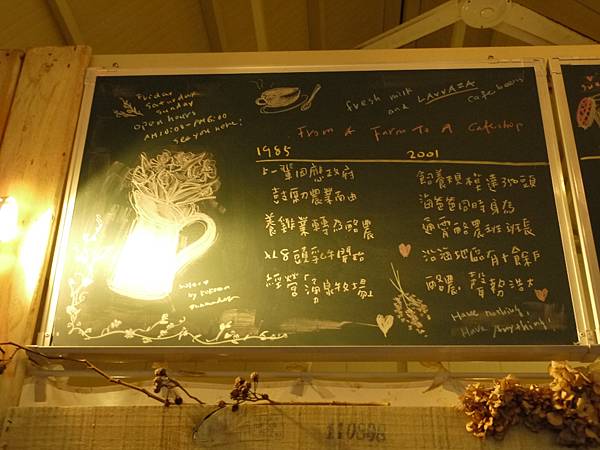 Friday
Saturday
Sunday
open hours
AM10:00~PM6:00
see you here!
fresh milk
and LAVAZZA cafe beans
From A Farm To A Cafeshop
1985
因應政府
鼓勵農業而由
養雞業轉為酪農
以8頭乳牛開始
經營「涌泉牧場」
2001
飼養規模達300頭
涵爸爸同時身為
酪農班班長
沿海地區有十餘戶
酪農
Have nothing,
Have anything.
110808